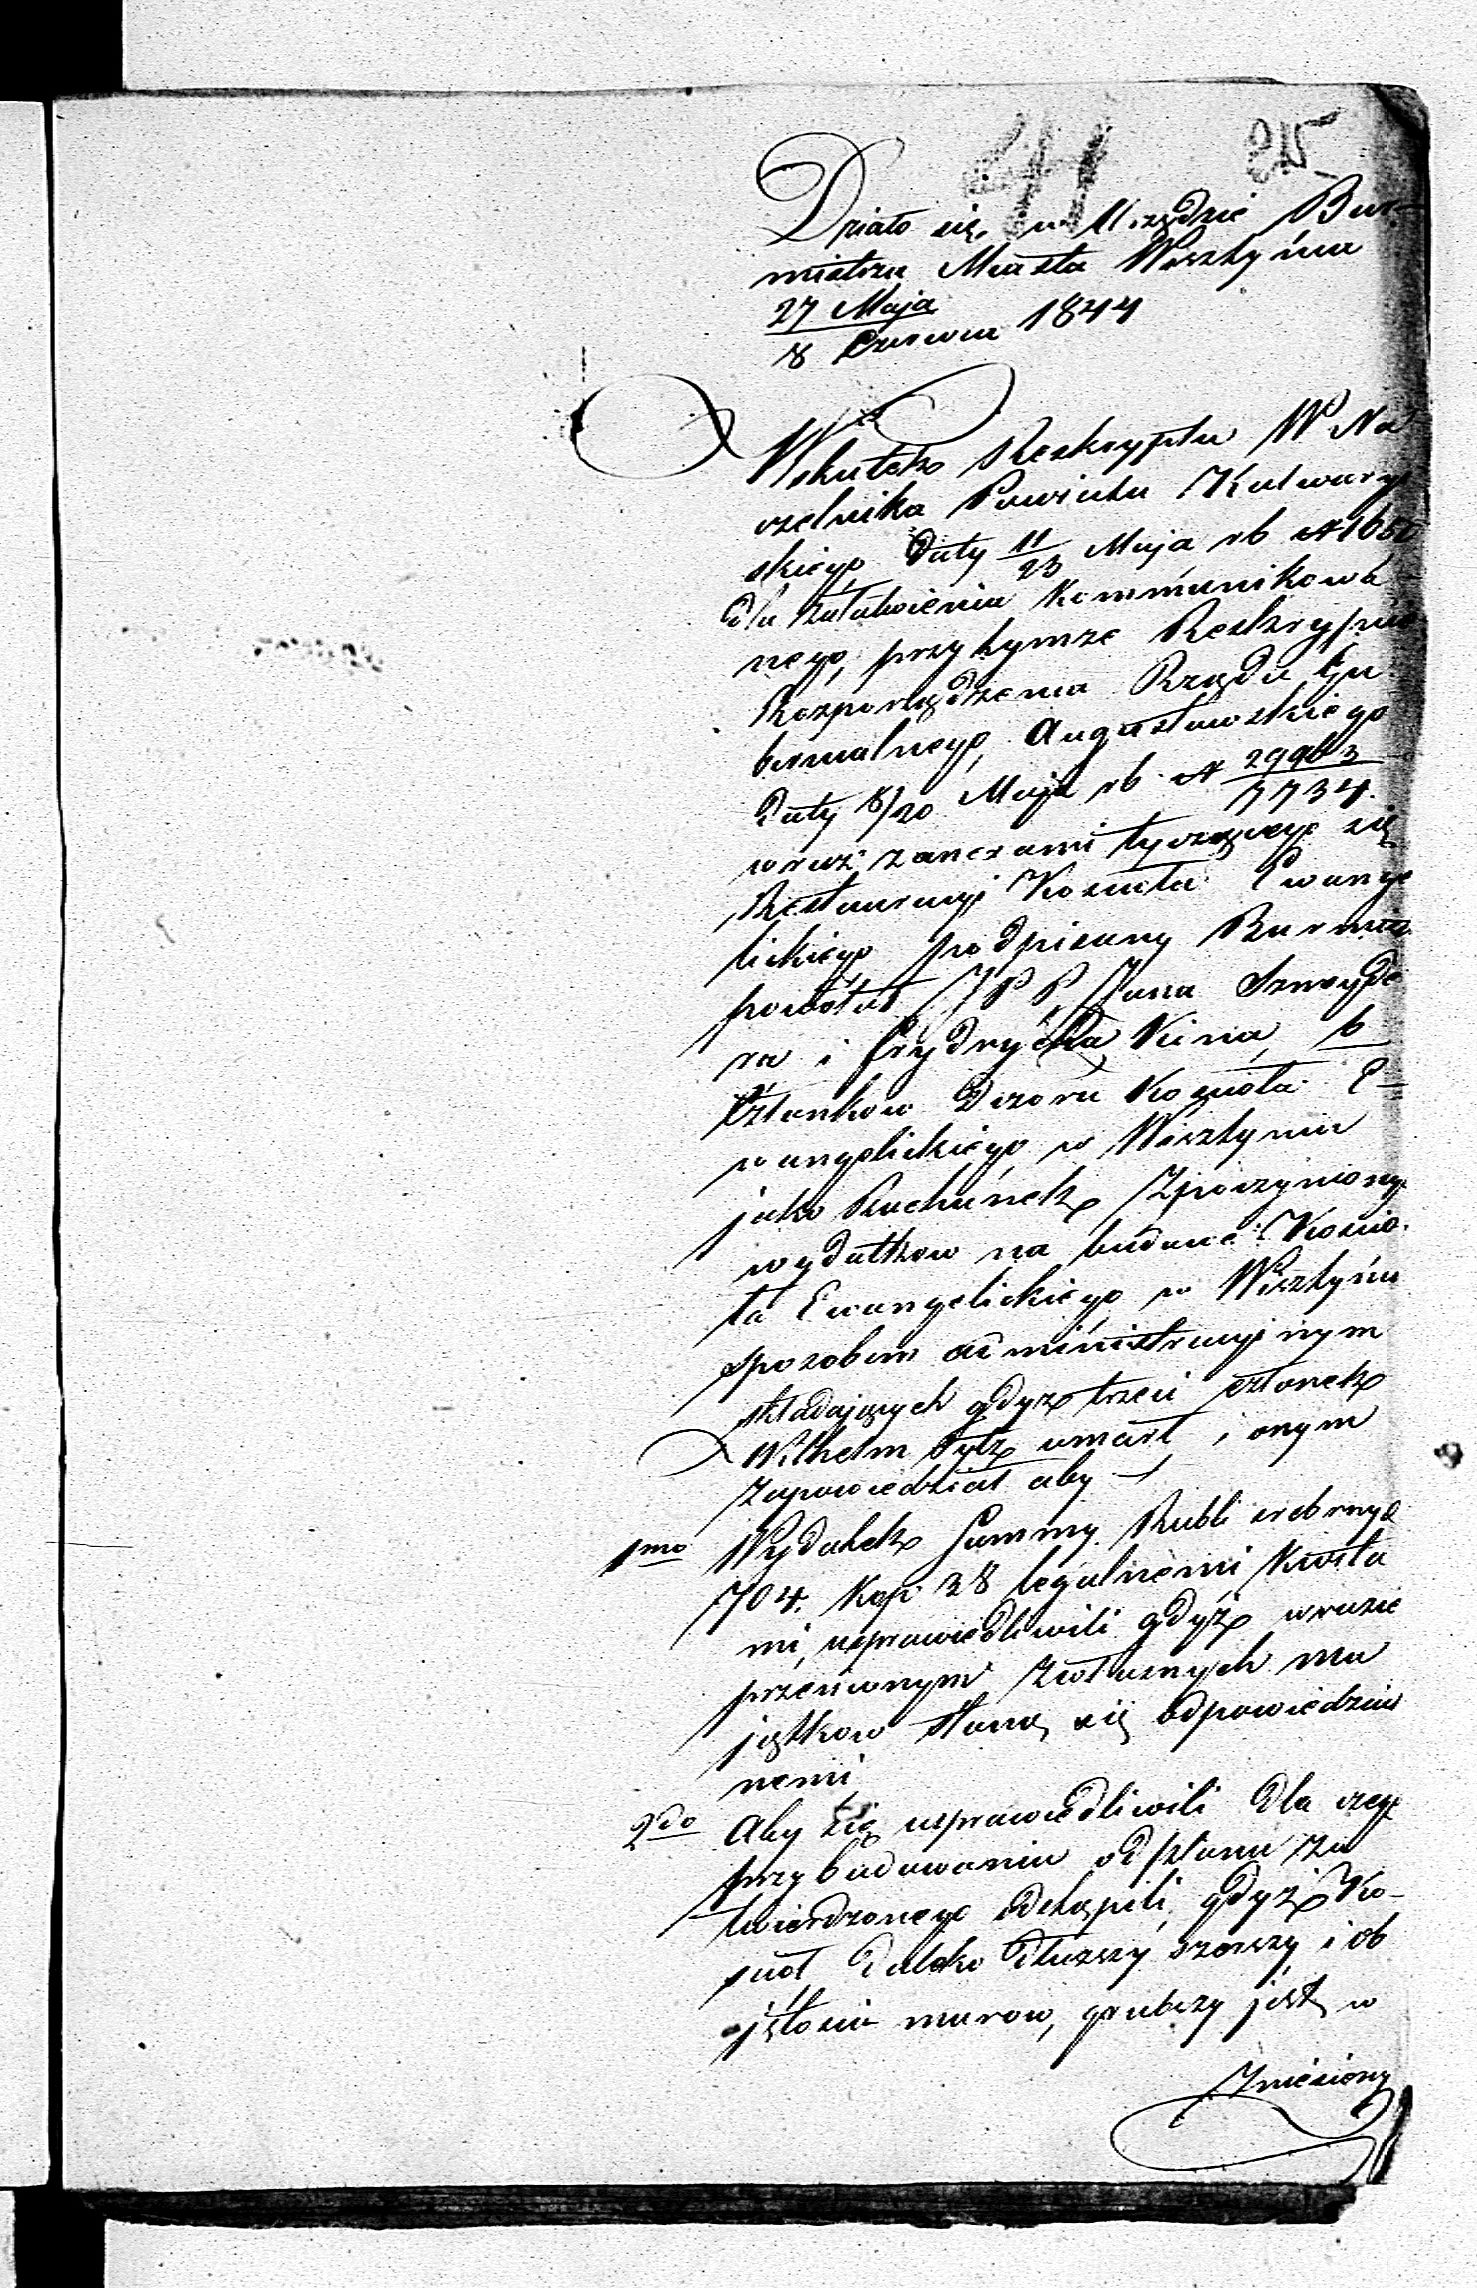 25
Działo się w Urzędzie Bur-
mistrza Miasta Wisztyńca
27 Maja
8 Czerwca 1844
Wskutek Reskryptu W Na
czelnika Powiatu Kalwaryi
skiego daty 11/23 Maja rb N
dla załatwienia kommunikowa-
nego, przytymże Reskrypcie
Rozporządzenia Rządu Gu
bernialnego, Augustowskiego
daty 8/20 Maja rb N 29963/7734.
wraz zanexami tyczącego się
Restauracyi Kościoła Ewange
lickiego podpisany Burmis.
powołał JPP Jana Sznayde
ra i Frydrycha Kina, b
Członkow Dozoru Kościoła E-
wangelickiego w Wisztyńcu
jako Rachunek Zpoczyniony
wydatkow na budowe Kościo-
ła Ewangelickiego w Wisztyńcu
sposobem administracyjnym
składających gdyż trzeci członek
Wilhelm umarł, i onym
zapowiedział aby
1mo Wydatek Summy Rubli srebrnych
704. Kop 38 legalnemi Kwita
mi, usprawiedliwili gdyż wrazie
przeciwnym zwłasnych ma
jątkow staną się odpowiedzial
nemi
2do Aby się usprawiedliwili dla czego
przy budowaniu od planu za
twierdzonego odstąpili, gdyż Ko-
ścioł daleko dłuższy szerszy i ob
jętości murow, grubszy jest w
Zniesiony